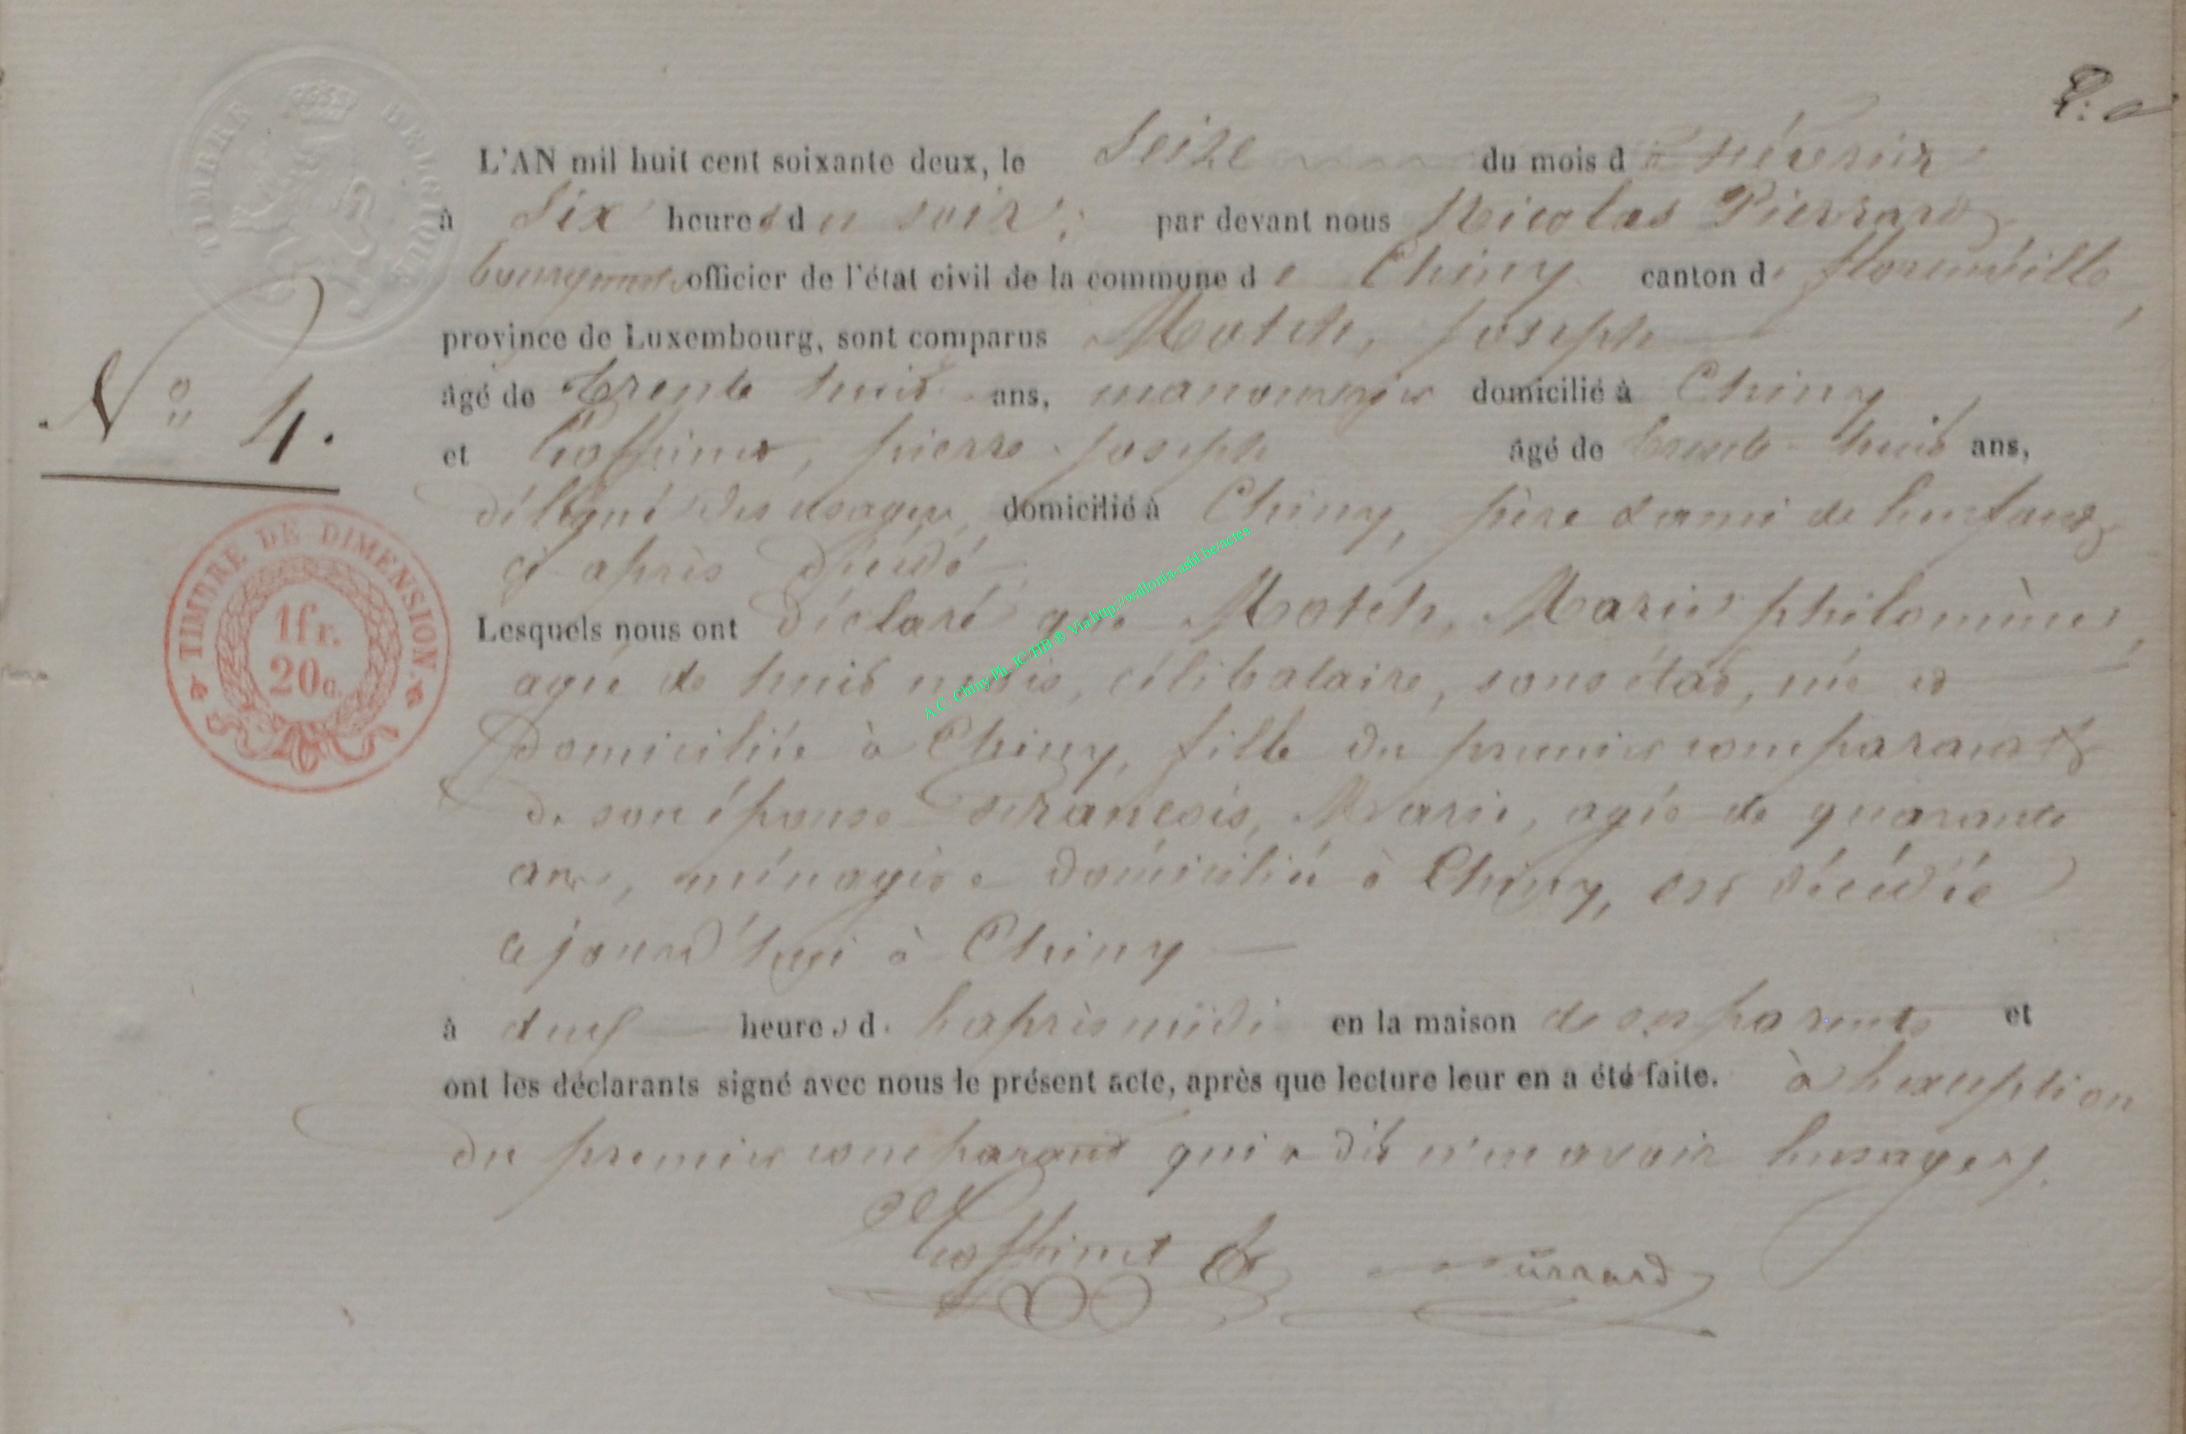 TIMBRE BELGIQUE
L'AN mil huit cent soixante deux, le Seize du mois de février
à Six heures du soir; par devant nous Nicolas Pierrard
bourgmestre officier de l'état civil de la commune de Chiny canton de florenville
province de Luxembourg, sont comparus Motch, Joseph
N° 4.
âgé de trente huit ans, manouvrier domicilié à Chiny
et pierre joseph âgé de trente-huit ans,
délégué des usages domicilié à Chiny, père de l'enfant
ci après
TIMBRE DE DIMENSION.
1fr.
20c.
Lesquels nous ont déclaré que Motch, Marie philomène,
agée de huit mois, célibataire, sans état, née et
domiciliée à Chiny, fille du premier comparant &
de son épouse Francois, Marie, agée de quarante
ans, ménagère domiciliée à Chiny, est décédée
ajourd'hui à Chiny
à deux heures de l'après midi en la maison de ses parents et
ont les déclarants signé avec nous le présent acte, après que lecture leur en a été faite. à l'exception
du premier comparant qui a dit n'en avoir l'usage
Pierrard
A.C. Chiny Ph. JC. HB ® Via http://wallonia-asbl.be/actes